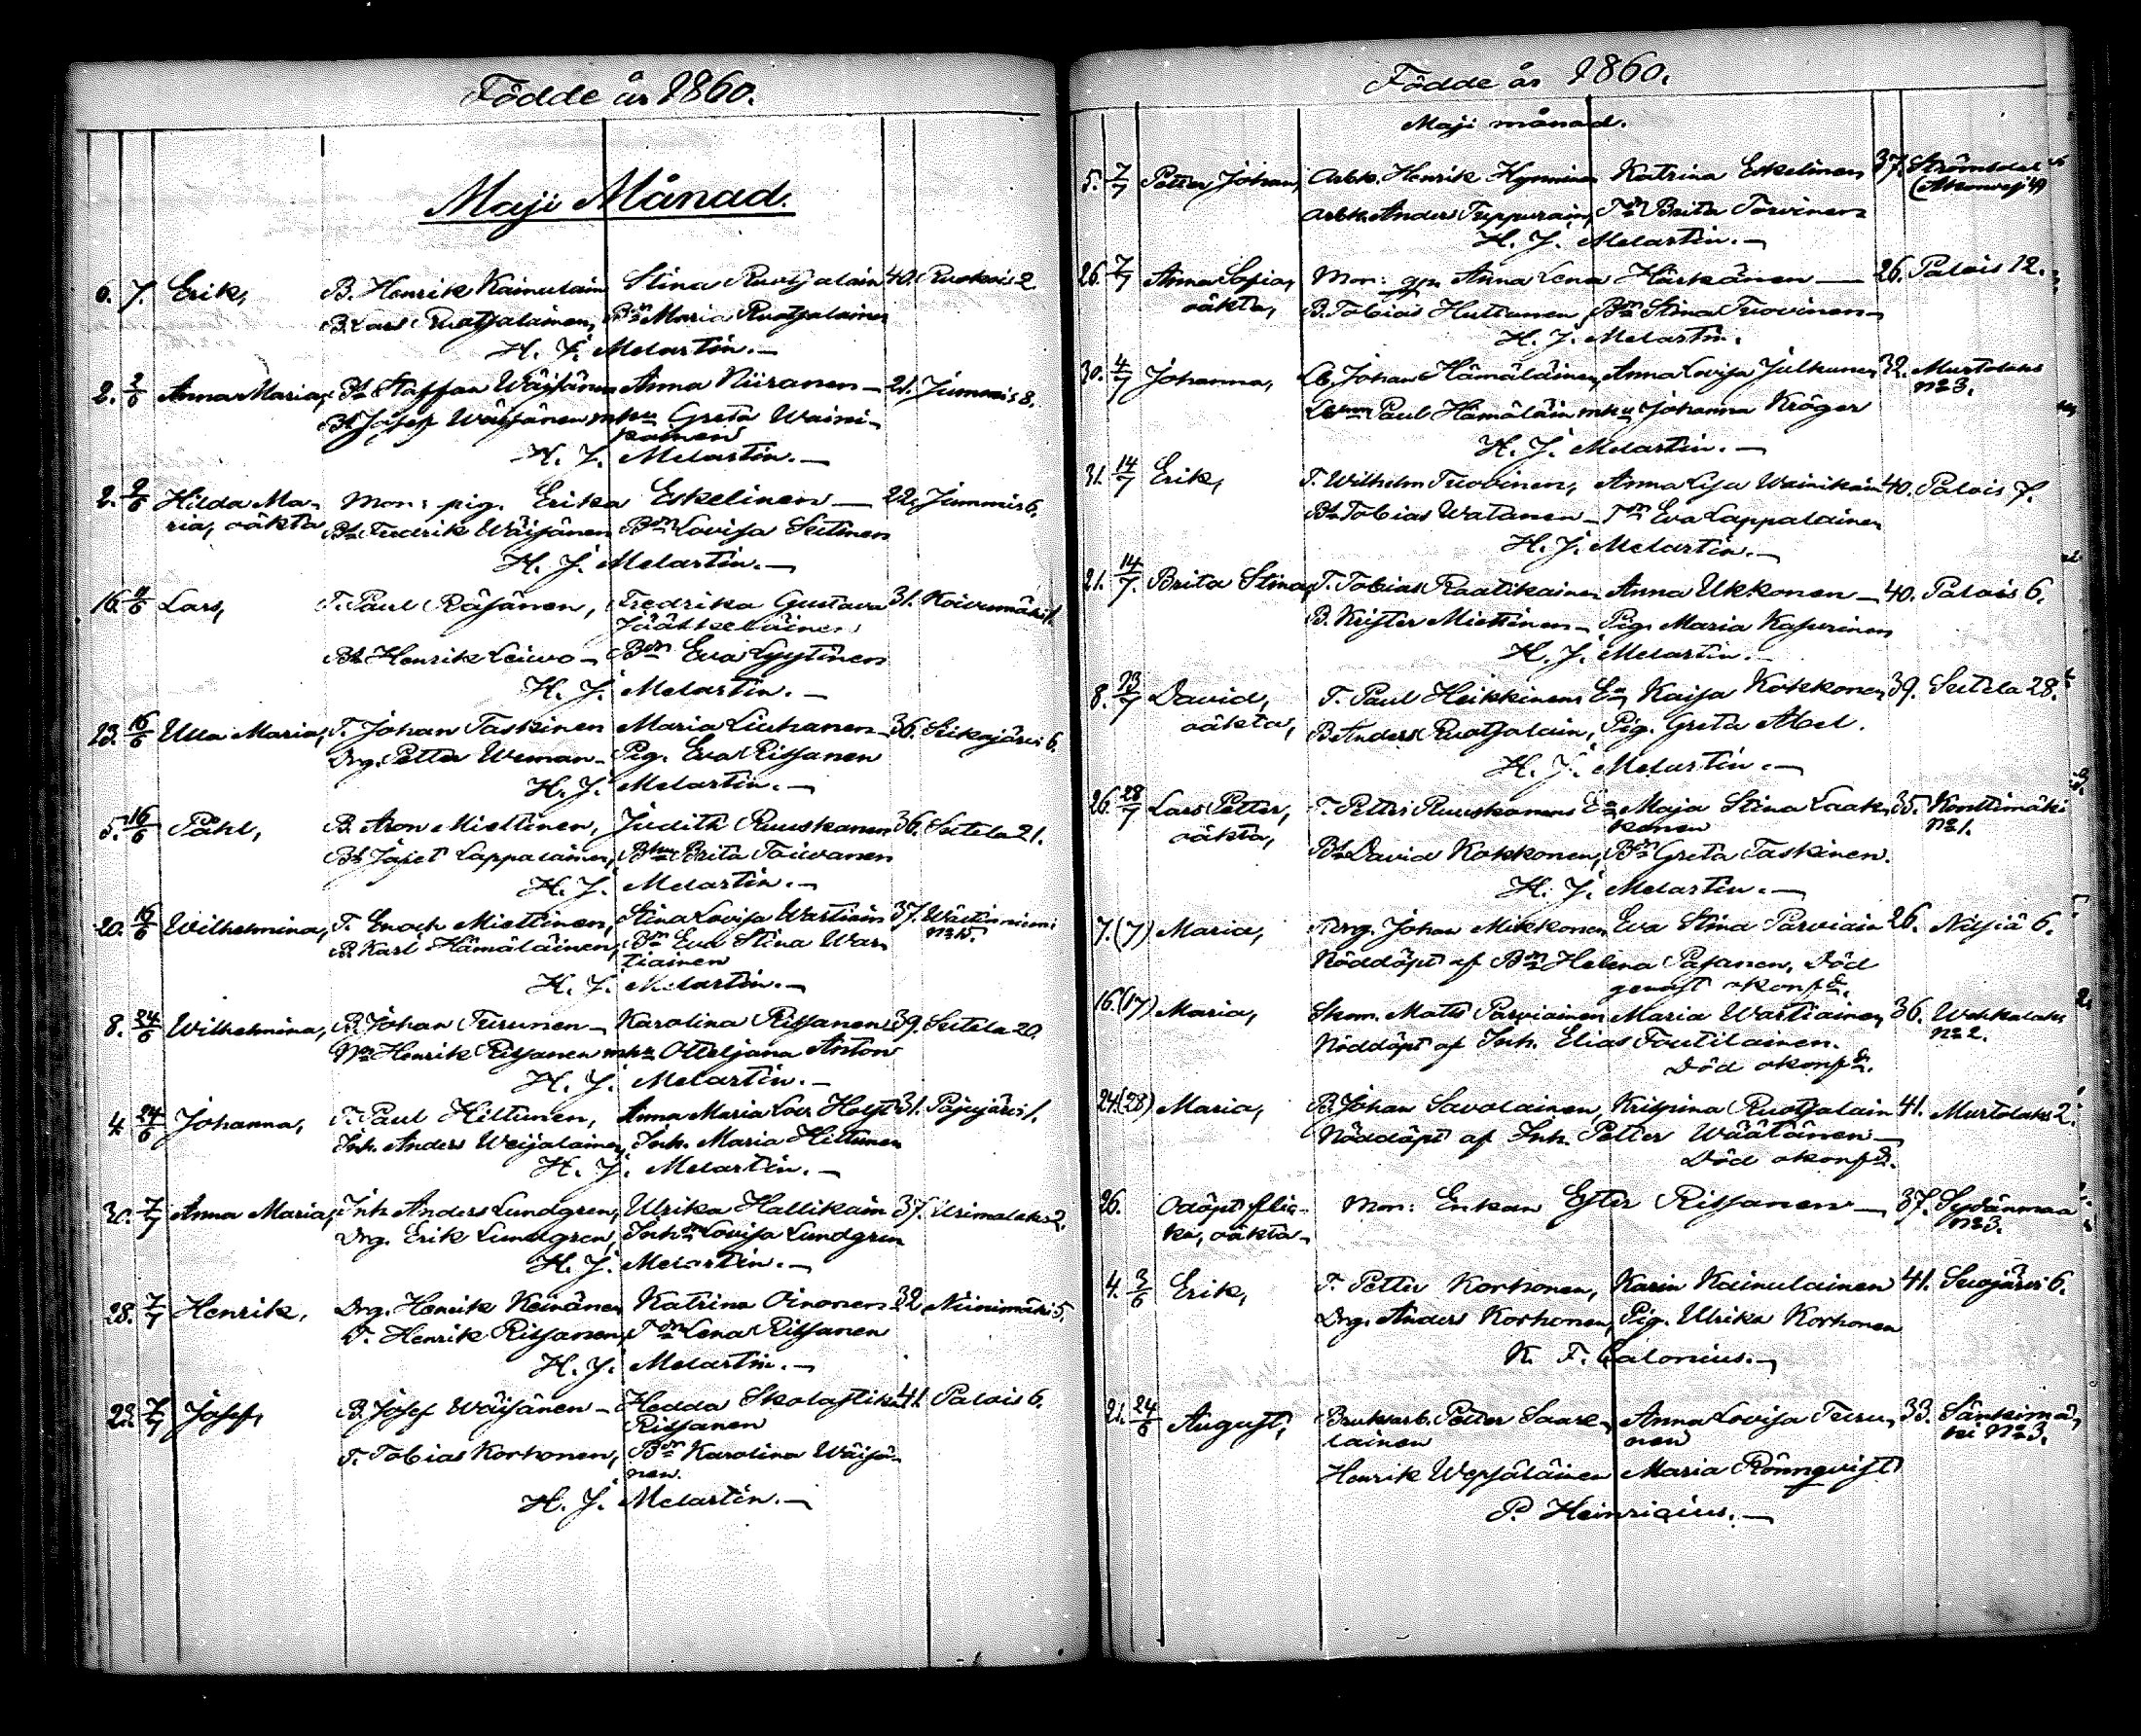 Födde år 1860.
Maji Månad.
6. 7. Erik, B. Henrik Kainulain Stina Ruotsalain 40. Ruokois 2
B. Lars Ruotsalainen, Bdn Maria Ruotsalainen
H. J. Melartin.
2. 2/6 Anna Maria, Bs Staffan Wäisänen Anna Niiranen 21. Jummis 8.
Bs Josef Wäisänen mhu Greta Waini-
kainen
H. J. Melartin.
2. 9/6 Hilda Ma- Mon: pig. Erika Eskelinen 22. Jummis 6.
ria, oäkta Bs Fredrik Wäisänen Bdn Lovisa Sutinen
H. J. Melartin.
16. 9/6 Lars, T. Paul Räsänen, Fredrika Gustava 31. Koivumäki 1.
Jääskeläinen
Bs Henrik Leivo Bdn Eva Lyytinen
H. J. Melartin.
23. 16/6 Ulla Maria, T. Johan Taskinen Maria Liuhanen 36. Siikajärvi 6.
Drg. Petter Weman Pig. Eva Rissanen
H. J. Melartin.
5. 16/6 Påhl, B. Aron Miettinen, Judith Ruuskanen 36. Sutela 21.
Bs Jafet Lappalainen, Bhu Brita Toivanen
H. J. Melartin.
20. 16/6 Wilhelmina, T. Enoch Miettinen, Stina Lovisa Wartiain 37. Västinniemi
No 15.
B. Karl Hämäläinen, Bdn Eva Stina War-
tiainen
H. J. Melartin.
8. 24/6 Wilhelmina, B. Johan Tirunen Karolina Rissanen 39. Sutela 20.
Henrik Rissanen mhu Otteljana Anton
H. J. Melartin.
4. 24/6 Johanna, T. Paul Hiltunen, Anna Maria Lov. Holst 31. Pajujärvi 1.
Inh. Anders Weijalainen, Inh. Maria Hiltunen
H. J. Melartin.
30. 7/7 Anna Maria, Inh Anders Lundgren, Ulrika Hallikain 37. Urimolaks 2.
Drg. Erik Lundgren, Inh Lovisa Lundgren
H. J. Melartin.
28. 7/7 Henrik, Drg. Henrik Keinänen Katrina Oinonen 32. Niinimäki 5.
T. Henrik Rissanen, Tdn Lena Rissanen
H. J. Melartin.
23. 7/7 Josef, B. Josef Wäisänen Hedda Skolastika 41. Palois 6.
Rissanen
T. Tobias Korhonen, Bdn Karolina Wäisä-
nen.
H. J. Melartin.
Födde år 1860.
Maji månad.
5. 7/7 Petter Johan, Arbk. Henrik Hynninen Katrina Eskelinen 37. Strömsdals
Arbk. Anders Tuppurain, Tdn Brita Torvinen
H. J. Melartin.
26. 7/7 Anna Sofia, Mon: gp. Anna Lena Härkönen 26. Palois 12.
oäkta, B. Tobias Huttunen Bdn Stina Tuovinen
H. J. Melartin.
30. 4/7 Johanna, Lb. Johan Hämäläinen, Anna Lovisa Julkunen 32. Murtolaks
No 3.
Paul Hämäläin mhu Johanna Kröger
H. J. Melartin.
31. 14/7 Erik, T. Wilhelm Tuovinen, Anna Lisa Wainikain 40. Palois 7.
Bs Tobias Watanen Tdn Eva Lappalainen
H. J. Melartin.
21. 14/7. Brita Stina, T. Tobias Raatikainen Anna Ukkonen 40. Palois 6.
B. Krister Miettinen Pig. Maria Kasurinen
H. J. Melartin.
8. 23/7 David, T. Paul Heikkinens Ea Kaisa Kokkonen 39. Sutela 28.
oäkta, B Anders Ruotsalain, Pig. Greta Abel.
H. J. Melartin.
26. 28/7 Lars Petter, T. Petter Ruuskanens Ea Maja Stina Laak- 35. Konttimäki
konen No 1.
oäkta, Bs David Kokkonen, Bdn Greta Taskinen.
H. J. Melartin.
7. (7) Maria, Drg. Johan Mikkonen Eva Stina Parviain 26. Nilsiä 6.
Nöddöpt af Bdn Helena Pasanen, Död
genast
16. (17) Maria, Skom. Matts Parviainen Maria Wartiainen 36.
No 2.
Nöddöpt af Inh. Elias Toutilainen.
Död
24. (28) Maria, B. Johan Savolainen, Krispina Ruotsalain 41. Murtolaks 2.
Nöddöpt af Inh. Petter Väätänen
Död
26. Odöpt flic- Mon: Enkan Ester Rissanen 37. Sydänmaa
ka, oäkta No 3.
4. 3/6 Erik, T. Petter Korhonen, Karin Kainulainen 41. Suojärvi 6.
Drg. Anders Korhonen, Pig. Ulrika Korhonen
K. F. Calonius.
21. 24/6 August, Bruksarb. Petter Saare- Anna Lovisa Tiru- 33. Sänkimä-
lainen nen ki No 3.
Henrik Wepsäläinen Maria Rönnqvist
P. Heinricius.